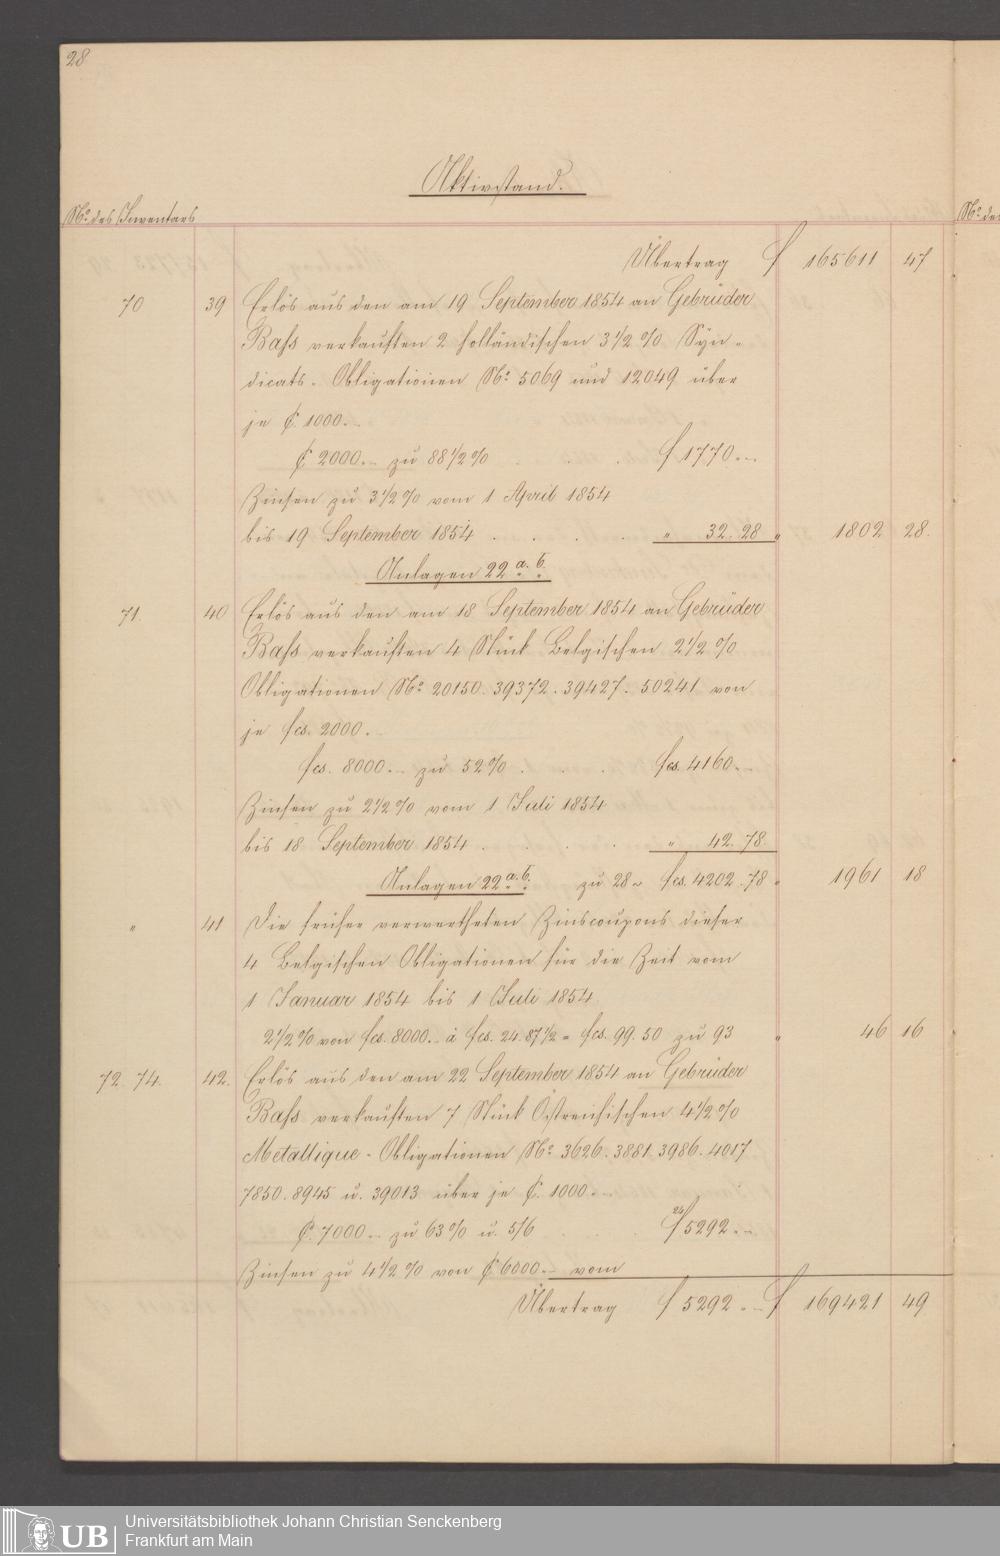 28
Aktivstand.
No. des Inventars
No. de
Übertrag f 165611 47
70 39 Erlös aus den am 19 September 1854 an Gebrüder
Bass verkauften 2 holländischen 3 1/2 % Syn-
dicats-Obligationen No. 5069 und 12049 über
je ₵. 1000.-
₵ 2000.- zu 88 1/2 % . . . f 1770.-
Zinsen zu 3 1/2 % vom 1 April 1854
bis 19 September 1854 . . . . " 32.28 " 1802 28.
Anlagen 22 a. b.
71. 40 Erlös aus den am 18 September 1854 an Gebrüder
Bass verkauften 4 Stück Belgischen 2 1/2 %
Obligationen No. 20150. 39372. 39427. 50241 von
je fcs. 2000.
fcs. 8000.- zu 52 % . . . fcs. 4160.-
Zinsen zu 2 1/2 % vom 1 Juli 1854
bis 18 September 1854 . . . . " 42.78.
Anlagen 22 a. b. zu 28 - fcs. 4202.78 " 1961 18
" 41 Die früher verwertheten Zinscoupons dieser
4 Belgischen Obligationen für die Zeit vom
1 Januar 1854 bis 1 Juli 1854
2 1/2 % von fcs. 8000.- à fcs. 24.87 1/2 = fcs. 99.50 zu 93 " 46 16
72. 74. 42. Erlös aus den am 22 September 1854 an Gebrüder
Bass verkauften 7 Stück Östreichischen 4 1/2 %
Metallique-Obligationen No. 3626. 3881. 3986. 4017
7850. 8945 u. 39013 über je ₵. 1000.-
₵. 7000.- zu 63 % u. 5/6 . . . . 24/f 5292.-
Zinsen zu 4 1/2 % von ₵ 6000.- vom
Übertrag f 5292.- f 169421 49
UB
Universitätsbibliothek Johann Christian Senckenberg
Frankfurt am Main